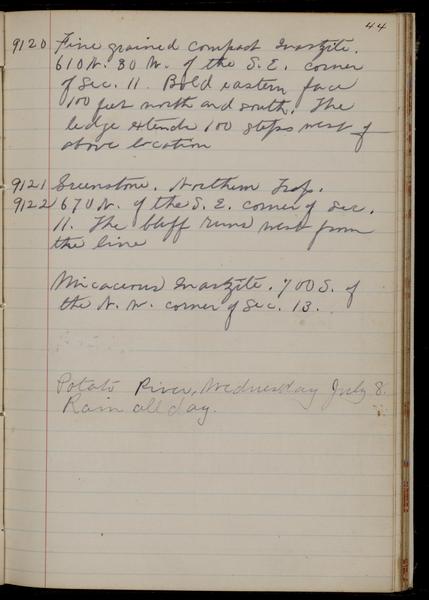 44
9120 Fine grained compact Quartzite.
610 N. 30 W. of the S. E. corner
of Sec. 11. Bold eastern face
100 feet north and south. The
ledge extends 100 steps west of
above location
9121 Greenstone. Northern Trap.
9122 670 N. of the S. E. corner of Sec.
11. The bluff runs west from
the line
Micaceous Quartzite. 700 S. of
the N. W. corner of Sec. 13.
Potato River, Wednesday July 8.
Rain all day.